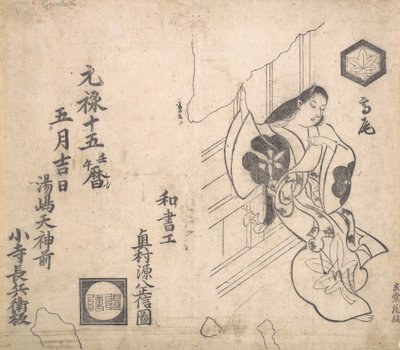 高尾
和畫工
奥村源八正信圖
元禄十五壬午暦
五月吉日
湯嶋天神前
小寺長兵衛板